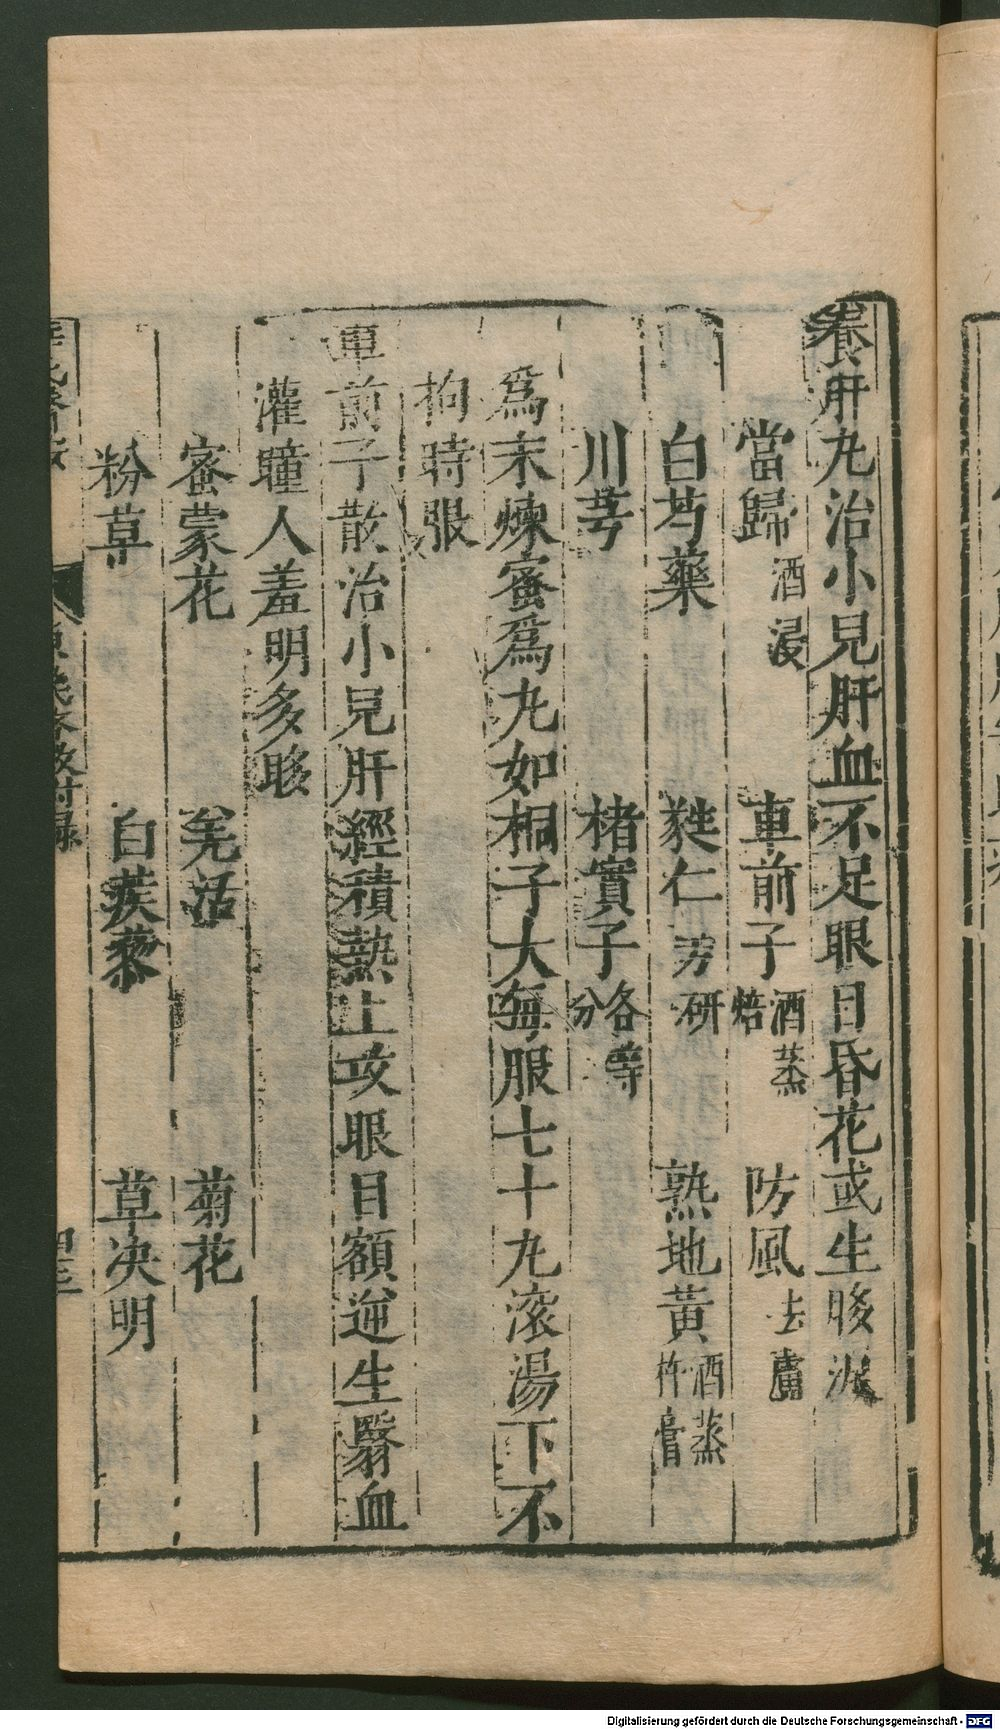 養肝丸治小兒肝血不足眼目昏花或生眵淚
當歸酒浸 車前子酒蒸焙 防風去蘆
白芍藥 蕤仁另研 熟地黃酒蒸杵膏
川芎 楮實子各等分
為末煉蜜為丸如桐子大每服七十丸滾湯下不
拘時服
車前子散治小兒肝經積熱上攻眼目額逆生翳血
灌瞳人羞明多眵
蜜蒙花 羌活 菊花
粉草 白蒺藜 草決明
附錄
Digitalisierung gefördert durch die Deutsche Forschungsgemeinschaft - DFG